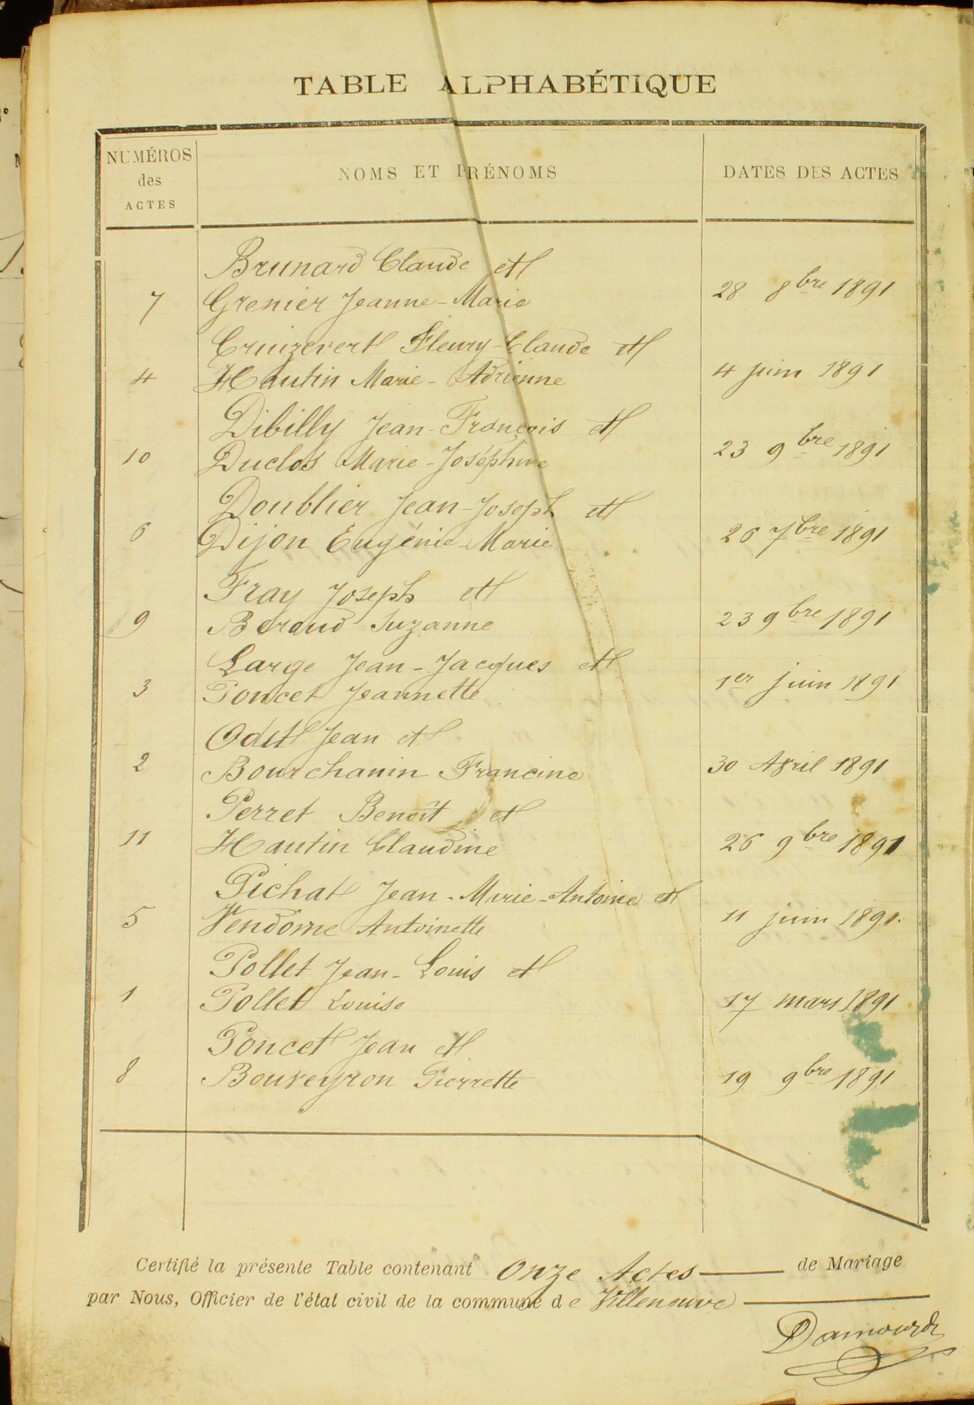 TABLE ALPHABÉTIQUE
NUMÉROS des ACTES NOMS ET PRÉNOMS DATES DES ACTES
Brunard Claude et
7 Grenier Jeanne-Marie 28 8bre 1891
Cruizevert Fleury-Claude et
4 Hautin Marie-Adrienne 4 juin 1891
Dibilly Jean-François et
10 Duclos Marie-Joséphine 23 9bre 1891
Doublier Jean-Joseph et
6 Dijon Eugénie-Marie 26 7bre 1891
Fray Joseph et
9 Beraud Suzanne 23 9bre 1891
Large Jean-Jacques et
3 Poncet Jeannette 1er juin 1891
Odet Jean et
2 Bourchanin Francine 30 Avril 1891
Perret Benoît et
11 Hautin Claudine 26 9bre 1891
Pichat Jean-Marie-Antoine et
5 Vendôme Antoinette 11 juin 1891.
Pollet Jean-Louis et
1 Pollet Louise 17 mars 1891
Poncet Jean et
8 Bouveyron Pierrette 19 9bre 1891
Certifié la présente Table contenant Onze Actes de Mariage
par Nous, Officier de l'état civil de la commune de Villeneuve